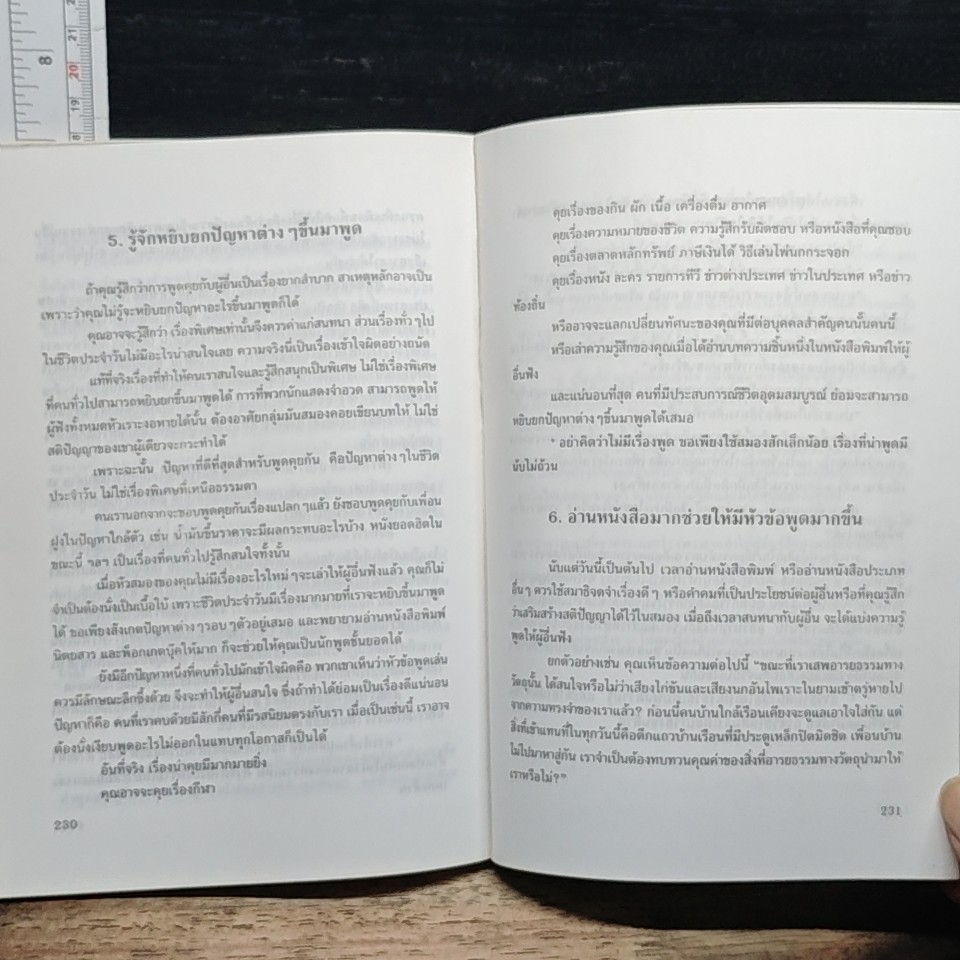 8
21
20
19
18
5. รู้จักหยิบยกปัญหาต่าง ๆขึ้นมาพูด
ถ้าคุณรู้สึกว่าการพูดคุยกับผู้อื่นเป็นเรื่องยากลำบาก สาเหตุหลักอาจเป็น
เพราะว่าคุณไม่รู้จะหยิบยกปัญหาอะไรขึ้นมาพูดก็ได้
คุณอาจจะรู้สึกว่า เรื่องพิเศษเท่านั้นจึงควรค่าแก่สนทนา ส่วนเรื่องทั่วๆไป
ในชีวิตประจำวันไม่มีอะไรน่าสนใจเลย ความจริงนี่เป็นเรื่องเข้าใจผิดอย่างถนัด
แท้ที่จริงเรื่องที่ทำให้คนเราสนใจและรู้สึกสนุกเป็นพิเศษ ไม่ใช่เรื่องพิเศษ
ที่คนทั่วไปสามารถหยิบยกขึ้นมาพูดได้ การที่พวกนักแสดงจำอวด สามารถพูดให้
ผู้ฟังทั้งหมดหัวเราะงอหายได้นั้น ต้องอาศัยกลุ่มมันสมองคอยเขียนบทให้ ไม่ใช่
สติปัญญาของเขาผู้เดียวจะกระทำได้
เพราะฉะนั้น ปัญหาที่ดีที่สุดสำหรับพูดคุยกัน คือปัญหาต่างๆในชีวิต
ประจำวัน ไม่ใช่เรื่องพิเศษที่เหนือธรรมดา
คนเรานอกจากจะชอบพูดคุยกันเรื่องแปลกๆแล้ว ยังชอบพูดคุยกับเพื่อน
ฝูงในปัญหาใกล้ตัว เช่น น้ำมันขึ้นราคาจะมีผลกระทบอะไรบ้าง หนังยอดฮิตใน
ขณะนี้ ฯลฯ เป็นเรื่องที่คนทั่วไปรู้สึกสนใจทั้งนั้น
เมื่อหัวสมองของคุณไม่มีเรื่องอะไรใหม่ๆจะเล่าให้ผู้อื่นฟังแล้ว คุณก็ไม่
จำเป็นต้องนั่งเป็นเบื้อใบ้ เพราะชีวิตประจำวันมีเรื่องมากมายที่เราจะหยิบขึ้นมาพูด
ได้ ขอเพียงสังเกตปัญหาต่างๆรอบๆตัวอยู่เสมอ และพยายามอ่านหนังสือพิมพ์
นิตยสาร และพ็อกเกตบุ๊คให้มาก ก็จะช่วยให้คุณเป็นนักพูดชั้นยอดได้
ยังมีอีกปัญหาหนึ่งที่คนทั่วไปมักเข้าใจผิดคือ พวกเขาเห็นว่าหัวข้อพูดเล่น
ควรมีลักษณะลึกซึ้งด้วย จึงจะทำให้ผู้อื่นสนใจ ซึ่งถ้าทำได้ย่อมเป็นเรื่องดีแน่นอน
ปัญหาก็คือ คนที่เราคบด้วยมีสักกี่คนที่มีรสนิยมตรงกับเรา เมื่อเป็นเช่นนี้ เราอาจ
ต้องนั่งเงียบพูดอะไรไม่ออกในแทบทุกโอกาสก็เป็นได้
อันที่จริง เรื่องน่าคุยมีมากมายยิ่ง
คุณอาจจะคุยเรื่องกีฬา
230
คุยเรื่องของกิน ผัก เนื้อ เครื่องดื่ม อากาศ
คุยเรื่องความหมายของชีวิต ความรู้สึกรับผิดชอบ หรือหนังสือที่คุณชอบ
คุยเรื่องตลาดหลักทรัพย์ ภาษีเงินได้ วิธีเล่นไพ่นกกระจอก
คุยเรื่องหนัง ละคร รายการทีวี ข่าวต่างประเทศ ข่าวในประเทศ หรือข่าว
ท้องถิ่น
หรืออาจจะแลกเปลี่ยนทัศนะของคุณที่มีต่อบุคคลสำคัญคนนั้นคนนี้
หรือเล่าความรู้สึกของคุณเมื่อได้อ่านบทความชิ้นหนึ่งในหนังสือพิมพ์ให้ผู้
อื่นฟัง
และแน่นอนที่สุด คนที่มีประสบการณ์ชีวิตอุดมสมบูรณ์ ย่อมจะสามารถ
หยิบยกปัญหาต่างๆขึ้นมาพูดได้เสมอ
* อย่าคิดว่าไม่มีเรื่องพูด ขอเพียงใช้สมองสักเล็กน้อย เรื่องที่น่าพูดมี
นับไม่ถ้วน
6. อ่านหนังสือมากช่วยให้มีหัวข้อพูดมากขึ้น
นับแต่วันนี้เป็นต้นไป เวลาอ่านหนังสือพิมพ์ หรืออ่านหนังสือประเภท
อื่นๆ ควรใช้สมาธิจดจำเรื่องดีๆ หรือคำคมที่เป็นประโยชน์ต่อผู้อื่นหรือที่คุณรู้สึก
ว่าเสริมสร้างสติปัญญาได้ไว้ในสมอง เมื่อถึงเวลาสนทนากับผู้อื่น จะได้แบ่งความรู้
พูดให้ผู้อื่นฟัง
ยกตัวอย่างเช่น คุณเห็นข้อความต่อไปนี้ "ขณะที่เราเสพอารยธรรมทาง
วัตถุนั้น ได้สนใจหรือไม่ว่าเสียงไก่ขันและเสียงนกอันไพเราะในยามเช้าตรู่หายไป
จากความทรงจำของเราแล้ว? ก่อนนี้คนบ้านใกล้เรือนเคียงจะดูแลเอาใจใส่กัน แต่
สิ่งที่เข้าแทนที่ในทุกวันนี้คือตึกแถวบ้านเรือนที่มีประตูเหล็กปิดมิดชิด เพื่อนบ้าน
ไม่ไปมาหาสู่กัน เราจำเป็นต้องทบทวนคุณค่าของสิ่งที่อารยธรรมทางวัตถุนำมาให้
เราหรือไม่?"
231